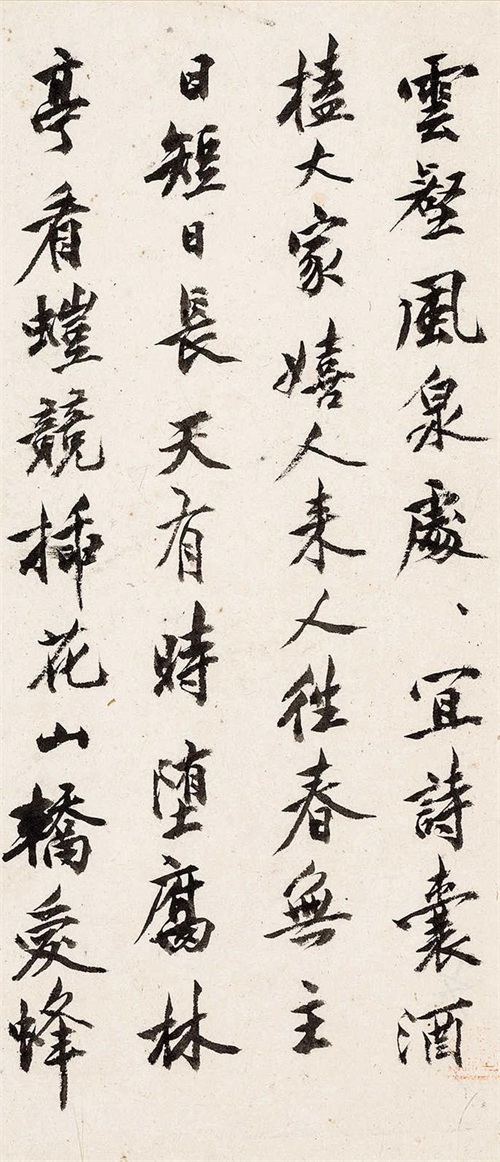 雲壑風泉處、宜詩囊酒
榼大家嬉人来人往春無主
日短日長天有時堕腐林
亭看螘競插花山轎愛蜂